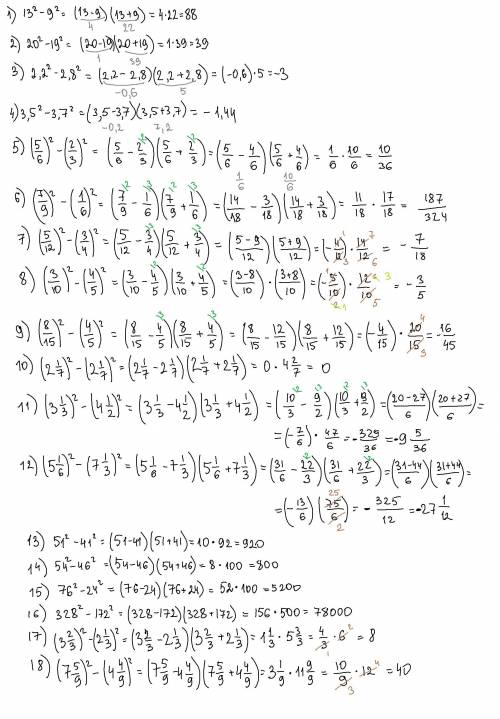 1) 13² - 9² = (13-9)(13+9) = 4·22 = 88
4 22
2) 20² - 19² = (20-19)(20+19) = 1·39 = 39
1 39
3) 2,2² - 2,8² = (2,2 - 2,8)(2,2 + 2,8) = (-0,6)·5 = -3
-0,6 5
4) 3,5² - 3,7² = (3,5-3,7)(3,5+3,7) = -1,44
-0,2 7,2
5) (5/6)² - (2/3)² = (5/6 - 2/3)(5/6 + 2/3) = (5/6 - 4/6)(5/6 + 4/6) = 1/6 · 10/6 = 10/36
1/6 10/6
6) (7/9)² - (1/6)² = (7/9 - 1/6)(7/9 + 1/6) = (14/18 - 3/18)(14/18 + 3/18) = 11/18 · 17/18 = 187/324
7) (5/12)² - (3/4)² = (5/12 - 3/4)(5/12 + 3/4) = (5-9/12)(5+9/12) = (-4/12)·14/12 = -7/18
8) (3/10)² - (4/5)² = (3/10 - 4/5)(3/10 + 4/5) = (3-8/10)·(3+8/10) = (-5/10)·12/10 = -3/5
9) (8/15)² - (4/5)² = (8/15 - 4/5)(8/15 + 4/5) = (8/15 - 12/15)(8/15 + 12/15) = (-4/15)·20/15 = -16/45
10) (2 1/7)² - (2 1/7)² = (2 1/7 - 2 1/7)(2 1/7 + 2 1/7) = 0·4 2/7 = 0
11) (3 1/3)² - (4 1/2)² = (3 1/3 - 4 1/2)(3 1/3 + 4 1/2) = (10/3 - 9/2)(10/3 + 9/2) = (20-27/6)(20+27/6) =
= (-7/6)·47/6 = -325/36 = -9 5/36
12) (5 1/6)² - (7 1/3)² = (5 1/6 - 7 1/3)(5 1/6 + 7 1/3) = (31/6 - 22/3)(31/6 + 22/3) = (31-44/6)(31+44/6) =
= (-13/6)(75/6) = -325/12 = -27 1/12
13) 51² - 41² = (51-41)(51+41) = 10·92 = 920
14) 54² - 46² = (54-46)(54+46) = 8·100 = 800
15) 76² - 24² = (76-24)(76+24) = 52·100 = 5200
16) 328² - 172² = (328-172)(328+172) = 156·500 = 78000
17) (3 2/3)² - (2 1/3)² = (3 2/3 - 2 1/3)(3 2/3 + 2 1/3) = 1 1/3 · 5 3/3 = 4/3 · 6 = 8
18) (7 5/9)² - (4 4/9)² = (7 5/9 - 4 4/9)(7 5/9 + 4 4/9) = 3 1/9 · 11 9/9 = 10/9 · 12 = 40